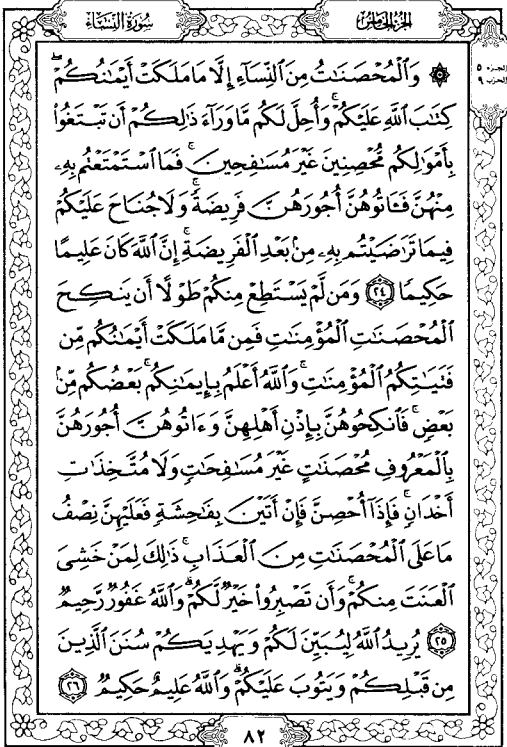 سُورَةُ النِّسَاءِ
الجزء الخامس
الجزء ٥
الحزب ٩
۞ وَٱلۡمُحۡصَنَٰتُ مِنَ ٱلنِّسَآءِ إِلَّا مَا مَلَكَتۡ أَيۡمَٰنُكُمۡۖ
كِتَٰبَ ٱللَّهِ عَلَيۡكُمۡۚ وَأُحِلَّ لَكُم مَّا وَرَآءَ ذَٰلِكُمۡ أَن تَبۡتَغُواْ
بِأَمۡوَٰلِكُم مُّحۡصِنِينَ غَيۡرَ مُسَٰفِحِينَۚ فَمَا ٱسۡتَمۡتَعۡتُم بِهِۦ
مِنۡهُنَّ فَـَٔاتُوهُنَّ أُجُورَهُنَّ فَرِيضَةٗۚ وَلَا جُنَاحَ عَلَيۡكُمۡ
فِيمَا تَرَٰضَيۡتُم بِهِۦ مِنۢ بَعۡدِ ٱلۡفَرِيضَةِۚ إِنَّ ٱللَّهَ كَانَ عَلِيمًا
حَكِيمٗا ٢٤ وَمَن لَّمۡ يَسۡتَطِعۡ مِنكُمۡ طَوۡلًا أَن يَنكِحَ
ٱلۡمُحۡصَنَٰتِ ٱلۡمُؤۡمِنَٰتِ فَمِن مَّا مَلَكَتۡ أَيۡمَٰنُكُم مِّن
فَتَيَٰتِكُمُ ٱلۡمُؤۡمِنَٰتِۚ وَٱللَّهُ أَعۡلَمُ بِإِيمَٰنِكُمۚ بَعۡضُكُم مِّنۢ
بَعۡضٖۚ فَٱنكِحُوهُنَّ بِإِذۡنِ أَهۡلِهِنَّ وَءَاتُوهُنَّ أُجُورَهُنَّ
بِٱلۡمَعۡرُوفِ مُحۡصَنَٰتٍ غَيۡرَ مُسَٰفِحَٰتٖ وَلَا مُتَّخِذَٰتِ
أَخۡدَانٖۚ فَإِذَآ أُحۡصِنَّ فَإِنۡ أَتَيۡنَ بِفَٰحِشَةٖ فَعَلَيۡهِنَّ نِصۡفُ
مَا عَلَى ٱلۡمُحۡصَنَٰتِ مِنَ ٱلۡعَذَابِۚ ذَٰلِكَ لِمَنۡ خَشِيَ
ٱلۡعَنَتَ مِنكُمۡۚ وَأَن تَصۡبِرُواْ خَيۡرٞ لَّكُمۡۗ وَٱللَّهُ غَفُورٞ رَّحِيمٞ
٢٥ يُرِيدُ ٱللَّهُ لِيُبَيِّنَ لَكُمۡ وَيَهۡدِيَكُمۡ سُنَنَ ٱلَّذِينَ
مِن قَبۡلِكُمۡ وَيَتُوبَ عَلَيۡكُمۡۗ وَٱللَّهُ عَلِيمٌ حَكِيمٞ ٢٦
٨٢